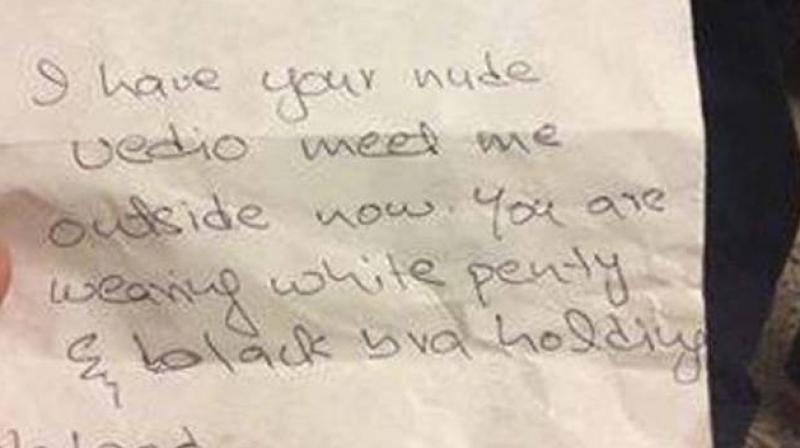 I have your nude
vedio meet me
outside now. You are
wearing white penty
& balack bra holding